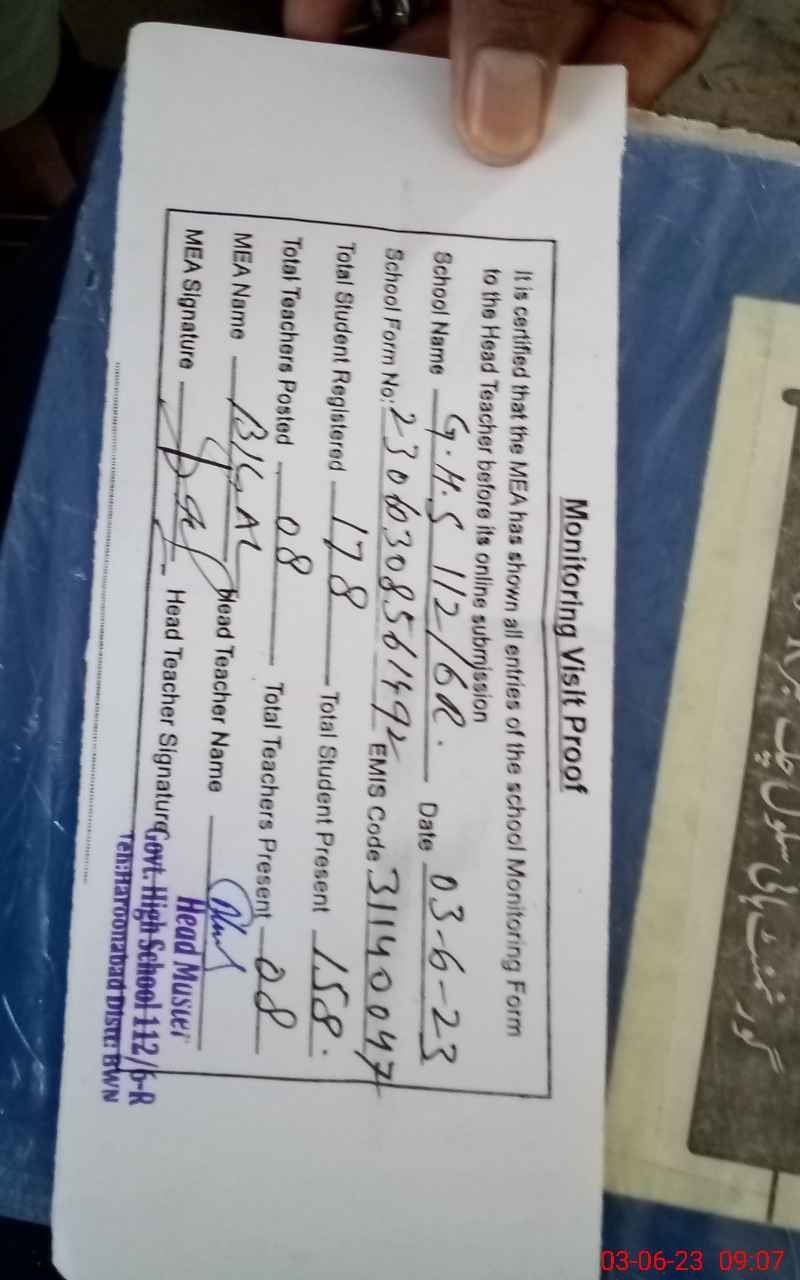 Monitoring Visit Proof
It is certified that the MEA has shown all entries of the school Monitoring Form
to the Head Teacher before its online submission
School Name G.H.S 112/6R. Date 03-6-23
School Form No: EMIS Code 31140047
Total Student Registered 178 Total Student Present 158.
Total Teachers Posted 08 Total Teachers Present 08
MEA Name BILAL Head Teacher Name
MEA Signature Head Teacher Signature
Head Master
Govt. High School 112/6-R
Teh: Haroonabad Distt: BWN
گورنمنٹ ہائی سکول چک
03-06-23 09:07